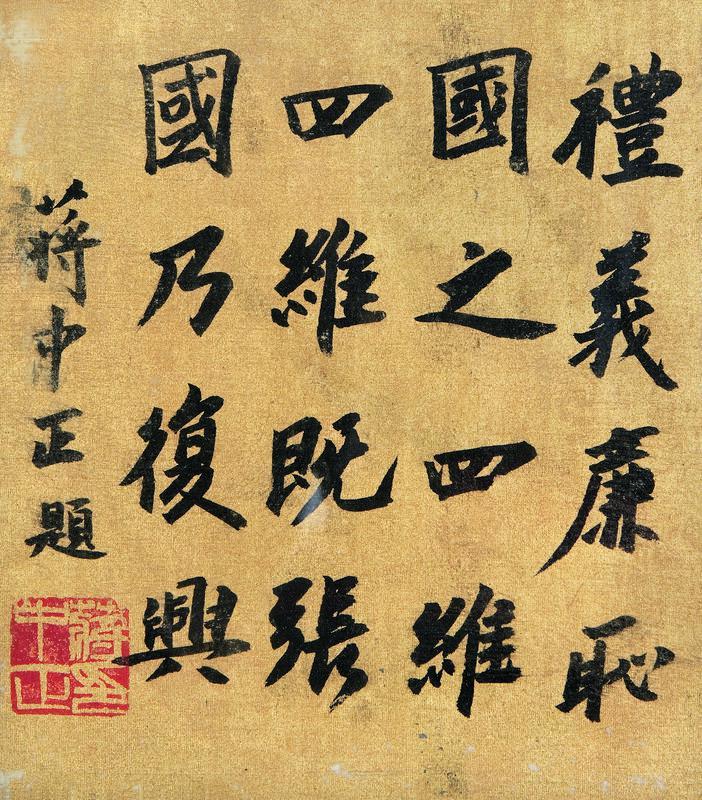 禮義廉恥
國之四維
四維既張
國乃復興
蔣中正題
蔣中正印